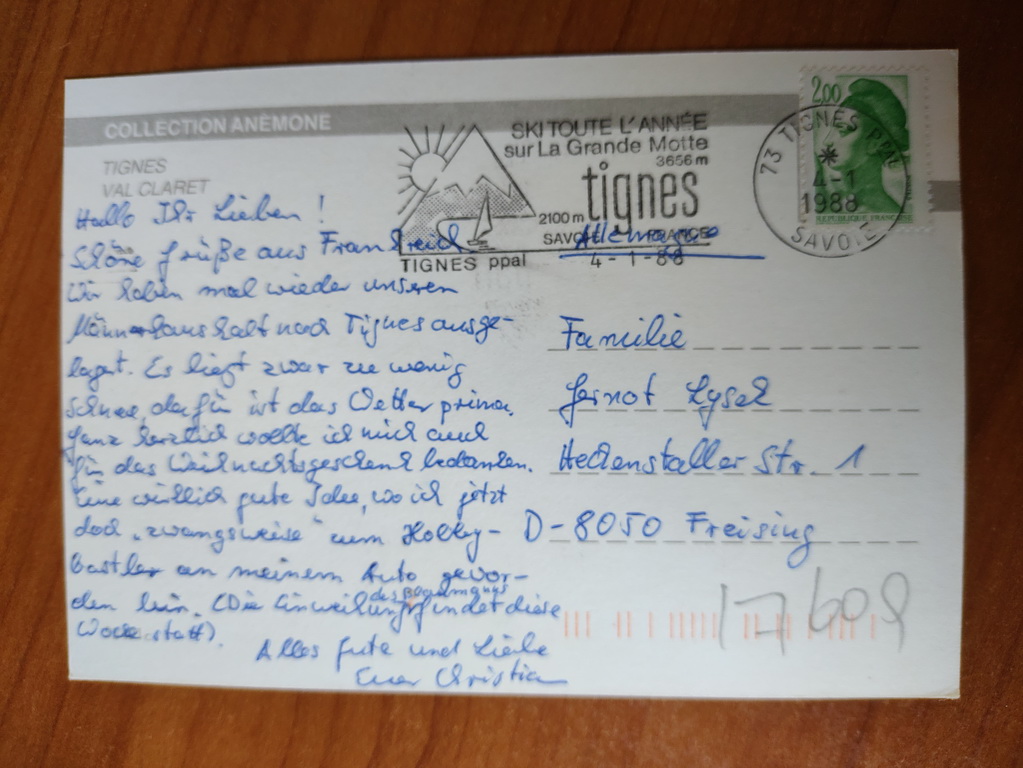 COLLECTION ANÉMONE
TIGNES
VAL CLARET
SKI TOUTE L'ANNÉE
sur La Grande Motte
3656 m
tignes
2100 m
SAVOIE FRANCE
TIGNES ppal 4-1-88
2,00
REPUBLIQUE FRANCAISE
73 TIGNES PPAL
4-1
1988
SAVOIE
Hallo Ihr Lieben!
Schöne Grüße aus Frankreich
Wir haben mal wieder unseren
Männerhaushalt nach Tignes ausge-
lagert. Es liegt zwar zu wenig
Schnee, dafür ist das Wetter prima.
Ganz herzlich wollte ich mich auch
für das Weihnachtsgeschenk bedanken.
Eine wirklich gute Idee, wo ich jetzt
doch „zwangsweise" zum Hobby-
Bastler an meinem Auto gewor-
den bin. (Die Einweihung findet diese
Woche statt).
Alles Gute und Liebe
Euer Christian
Allemagne
Familie
Gernot Lysek
Heckenstaller Str. 1
D-8050 Freising
17609